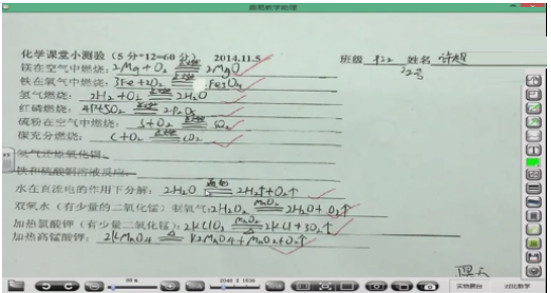 化学课堂小测验（5分*12=60分） 2014.11.5 班级 姓名
镁在空气中燃烧：2Mg+O₂ 点燃 2MgO
铁在氧气中燃烧：3Fe+2O₂ 点燃 Fe₃O₄
氢气燃烧：2H₂+O₂ 点燃 2H₂O
红磷燃烧：4P+5O₂ 点燃 2P₂O₅
硫粉在空气中燃烧：S+O₂ 点燃 SO₂
碳充分燃烧：C+O₂ 点燃 CO₂
氢气还原氧化铜：
铁和硫酸铜溶液反应：
水在直流电的作用下分解：2H₂O 通电 2H₂↑+O₂↑
双氧水（有少量的二氧化锰）制氧气：2H₂O₂ MnO₂ 2H₂O+O₂↑
加热氯酸钾（有少量二氧化锰）：2KClO₃ MnO₂ △ 2KCl+3O₂↑
加热高锰酸钾：2KMnO₄ △ K₂MnO₄+MnO₂+O₂↑